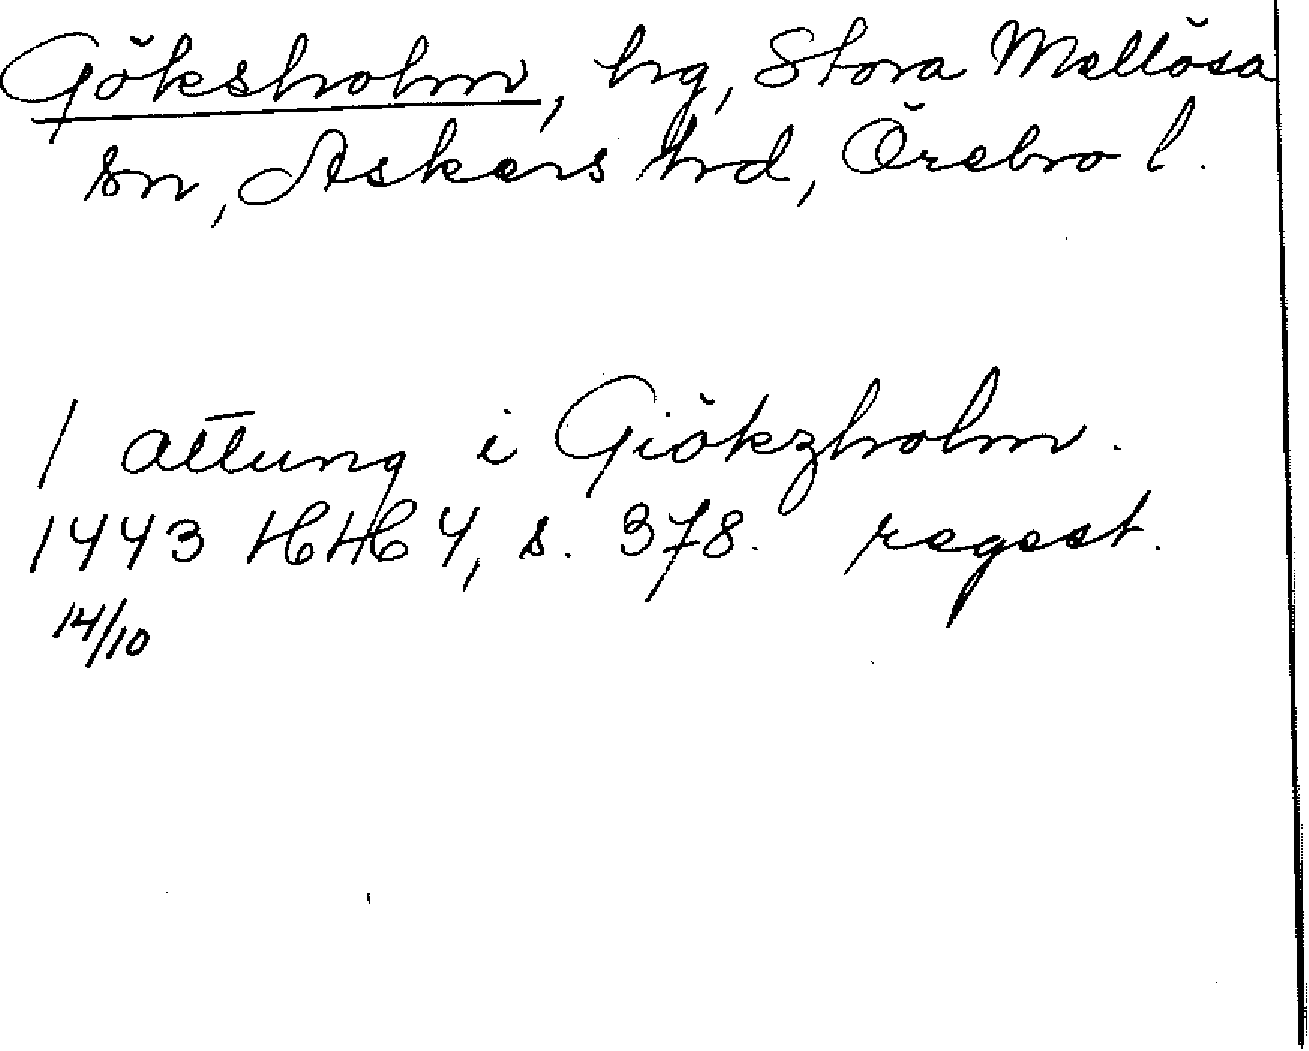 Göksholm, hg, Stora Mellösa
sn, Askers hd, Örebro l.
1 attung i Giökzholm.
1443 HH 4, s. 378. regest.
14/10